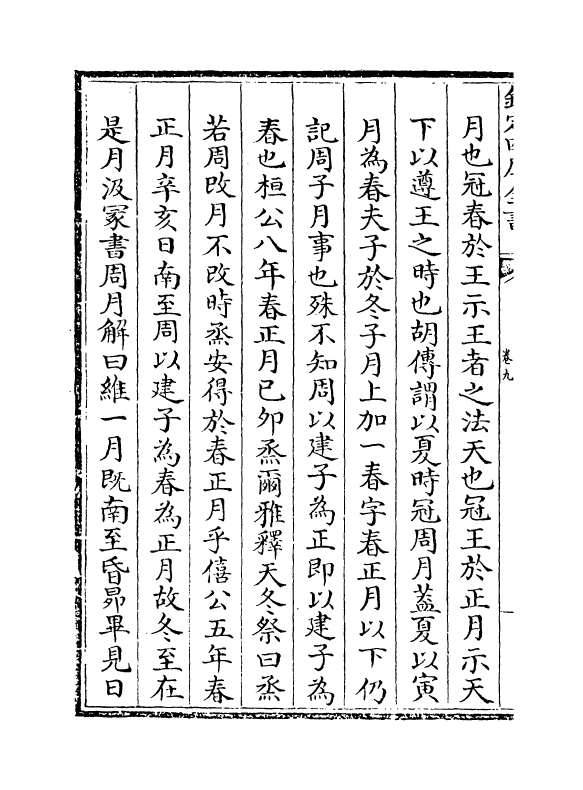 欽定四庫全書
卷九
月也冠春於王示王者之法天也冠王於正月示天
下以遵王之時也胡傳謂以夏時冠周月蓋夏以寅
月為春夫子於冬子月上加一春字春正月以下仍
記周子月事也殊不知周以建子為正即以建子為
春也桓公八年春正月已夘烝爾雅釋天冬祭曰烝
若周改月不改時烝安得於春正月乎僖公五年春
正月辛亥日南至周以建子為春為正月故冬至在
是月汲冢書周月解曰維一月既南至昏昴畢見日